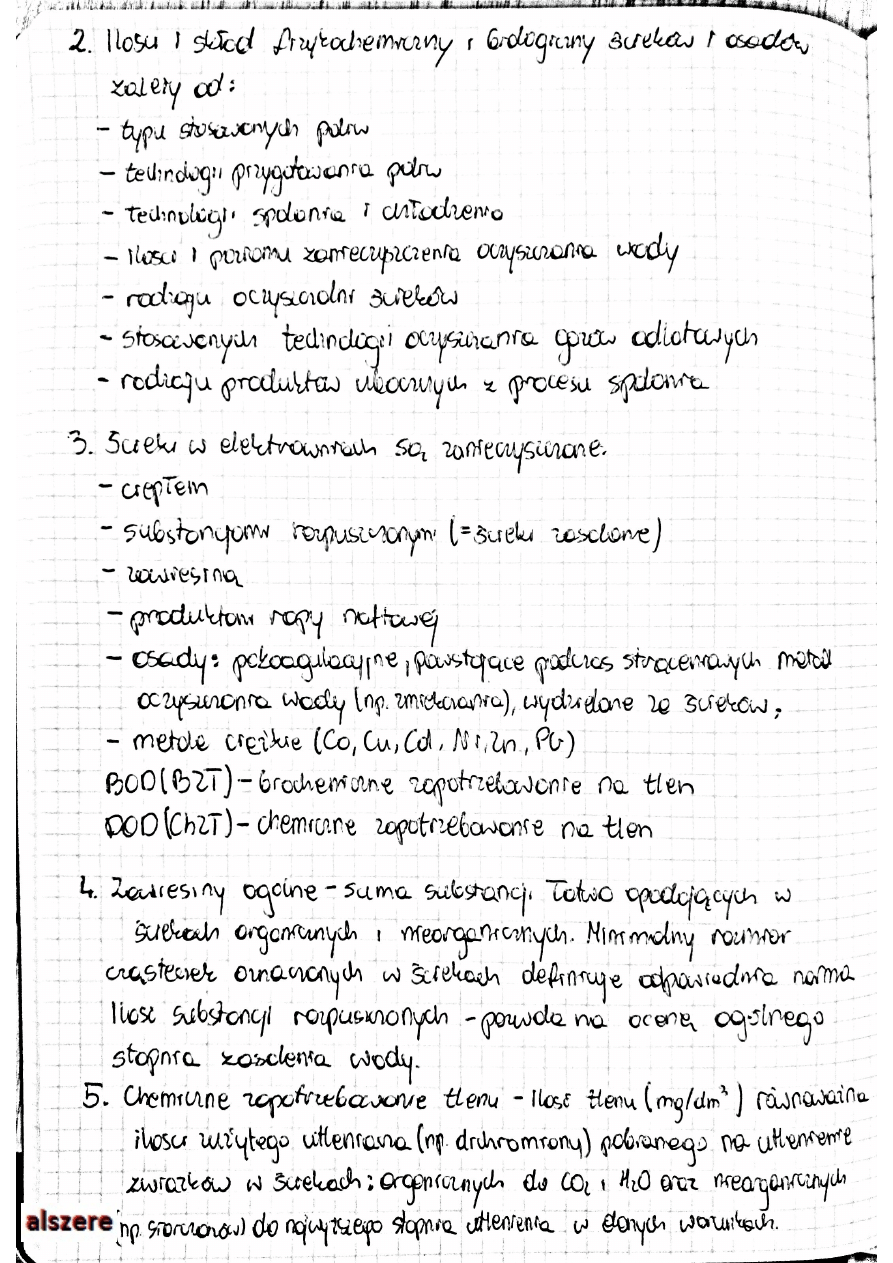 2. Ilość i skład fizykochemiczny i biologiczny ścieków i osadów
zależy od:
- typu stosowanych paliw
- technologii przygotowania paliw
- technologii spalania i chłodzenia
- ilości i poziomu zanieczyszczenia oczyszczania wody
- rodzaju oczyszczalni ścieków
- stosowanych technologii oczyszczania gazów odlotowych
- rodzaju produktów ubocznych z procesu spalania
3. Ścieki w elektrowniach są zanieczyszczone.
- ciepłem
- substancjami rozpuszczonymi (=ścieki zasolone)
- zawiesiną
- produktami ropy naftowej
- osady: pokoagulacyjne, powstające podczas strąceniowych metod
oczyszczania wody (np. zmiękczania), wydzielone ze ścieków;
- metale ciężkie (Co, Cu, Cd, Ni, Zn, Pb)
BOD(BZT) - biochemiczne zapotrzebowanie na tlen
DOD(ChZT) - chemiczne zapotrzebowanie na tlen
4. Zawiesiny ogólne - suma substancji łatwo opadających w
ściekach organicznych i nieorganicznych. Minimalny rozmiar
cząsteczek oznaczonych w ściekach definiuje odpowiednia norma
Ilość substancji rozpuszczonych - pozwala na ocenę ogólnego
stopnia zasolenia wody.
5. Chemiczne zapotrzebowanie tlenu - ilość tlenu (mg/dm³) równoważna
ilości zużytego utleniacza (np. dichromiony) pobranego na utlenienie
związków w ściekach: organicznych do CO₂ i H₂O oraz nieorganicznych
(np. siarczanów) do najwyższego stopnia utlenienia w danych warunkach.
alszere